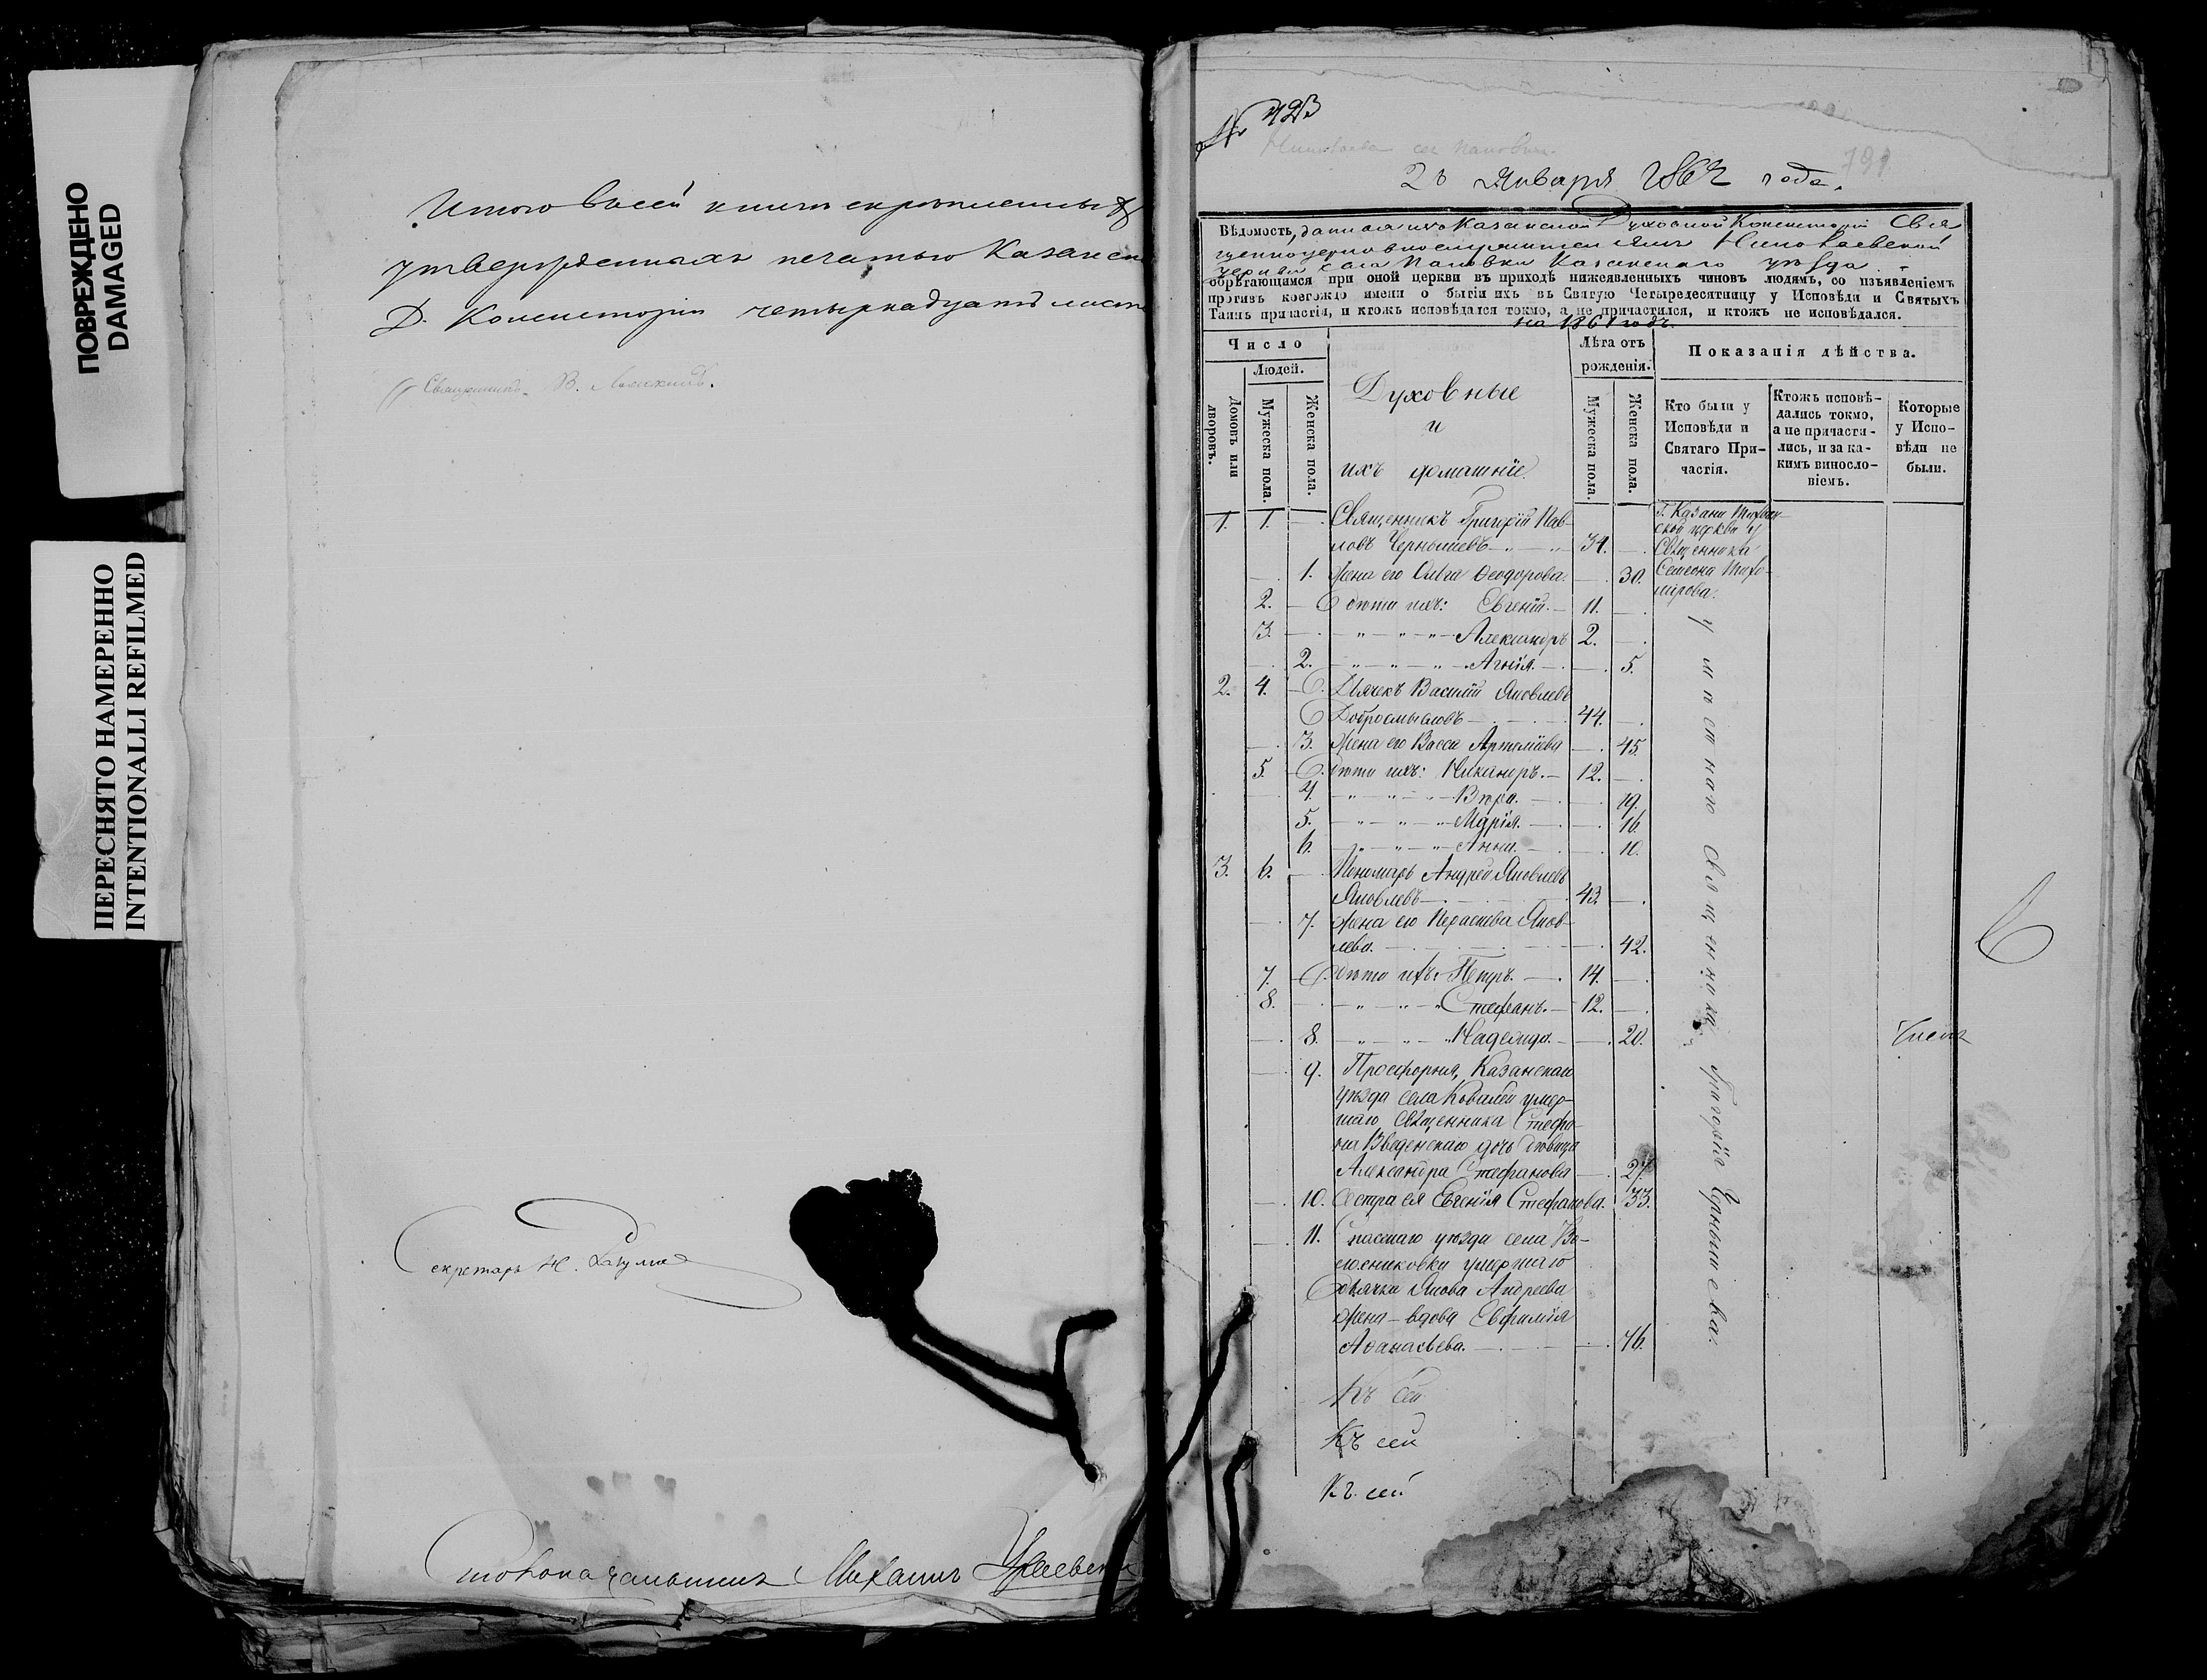 ПОВРЕЖДЕНО
DAMAGED
ПЕРЕСНЯТО НАМЕРЕННО
INTENTIONALLI REFILMED
Итого въ сей книге скрепленныхъ
утвержденныхъ печатью Казанск
Д. Консисторіи четырнадцать лист
Священникъ В.
Секретарь Н.
Столоначальникъ Михаилъ
№ 423
Николаевск. сел. Пановки.
791
20 Января 1862 года.
Вѣдомость, данная изъ Казанской Духовной Консисторіи Свя
щенноцерковнослужителямъ Николаевской
церкви села Пановки Казанскаго уѣзда
обрѣтающимся при оной церкви въ приходѣ нижеявленныхъ чиновъ людямъ, со изъявленіемъ
противъ коегождо имени о бытіи ихъ въ Святую Четыредесятницу у Исповѣди и Святыхъ
Таинъ причастія, и ктожъ исповѣдался токмо, а не причастился, и ктожъ не исповѣдался.
на 1861 годъ.
Число
Людей.
Домовъ или дворовъ.
Мужеска пола.
Женска пола.
Духовные
и
ихъ домашніе.
Лѣта отъ рожденія.
Мужеска пола.
Женска пола.
Показанія дѣйства.
Кто были у Исповѣди и Святаго Причастія.
Ктожъ исповѣ-
дались токмо,
а не причасти-
лись, и за ка-
кимъ винosло-
віемъ.
Которые
у Испо-
вѣди не
были.
1. 1. Священникъ Григорій Пав-
ловъ Чернышевъ 34.
Г. Казани Тихвин-
ской церкви у
Священника
Симеона Тихо-
мірова.
1. Жена его Ольга Ѳеодорова. 30.
2. Дѣти ихъ: Евгеній. 11.
3. Александръ 2.
2. Агнія. 5.
2. 4. Дьячекъ Василій Яковлевъ
Добросмысловъ 44.
3. Жена его Васса Артемьева 45.
5. Дѣти ихъ: Никаноръ. 12.
4. Вѣра. 19.
5. Марія. 16.
6. Анна. 10.
3. 6. Пономарь Андрей Яковлевъ
Яковлевъ 43.
7. Жена его Параскева Яков-
лева. 42.
7. Дѣти ихъ: Петръ. 14.
8. Стефанъ. 12.
8. Надежда. 20.
9. Просфорня, Казанскаго
уѣзда села Ковалей умер-
шаго священника Стефа-
на Введенскаго дочь дѣвица
Александра Стефанова 27.
10. Сестра ея Евгенія Стефанова. 33.
11. Спасскаго уѣзда села
умершаго
дьячка Якова Андреева
жена - вдова Евфимія
Аѳанасьева. 76.
у мѣстнаго священника Григорія Чернышева.
Къ сей
Къ сей
Къ сей